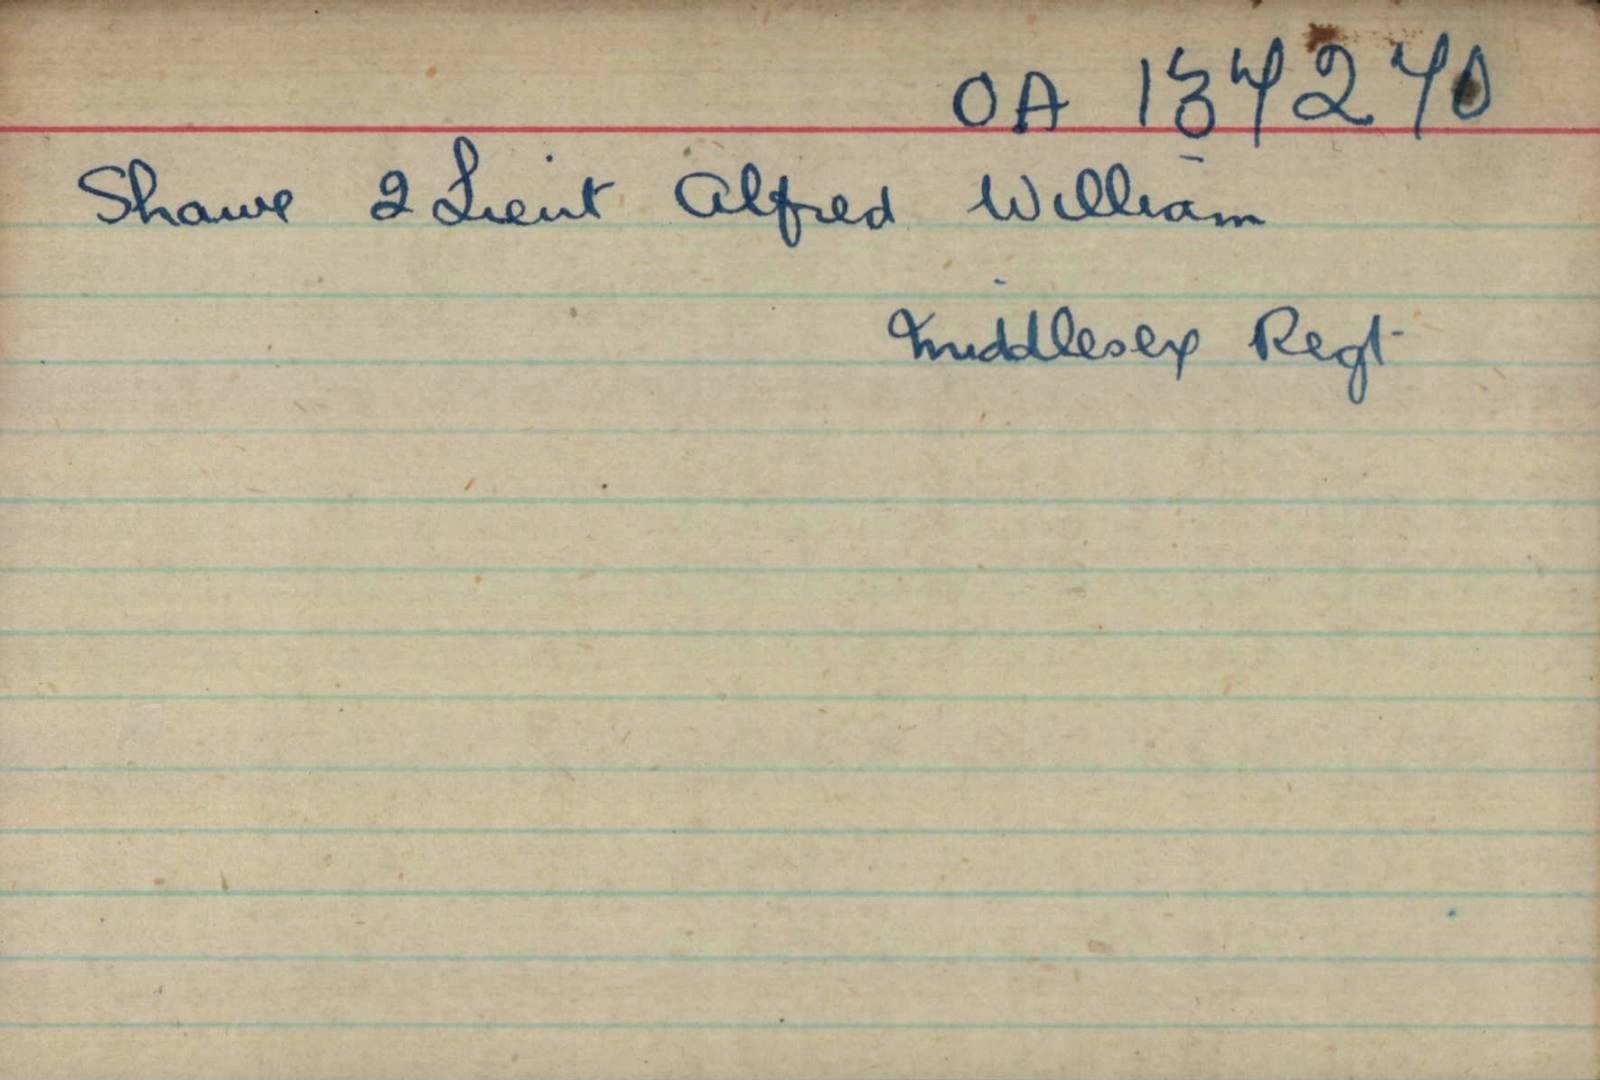 OA 137270
Shawe 2 Lieut Alfred William
Middlesex Regt